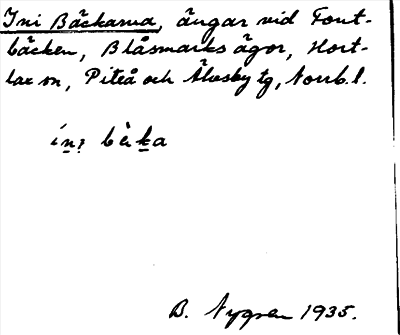 Ini Bäckarna, ängar vid Font-
bäcken, Blåsmarks ägor, Hort-
lax sn, Piteå och Älvsby tg, Norrb. l.
B. Nygren 1935.